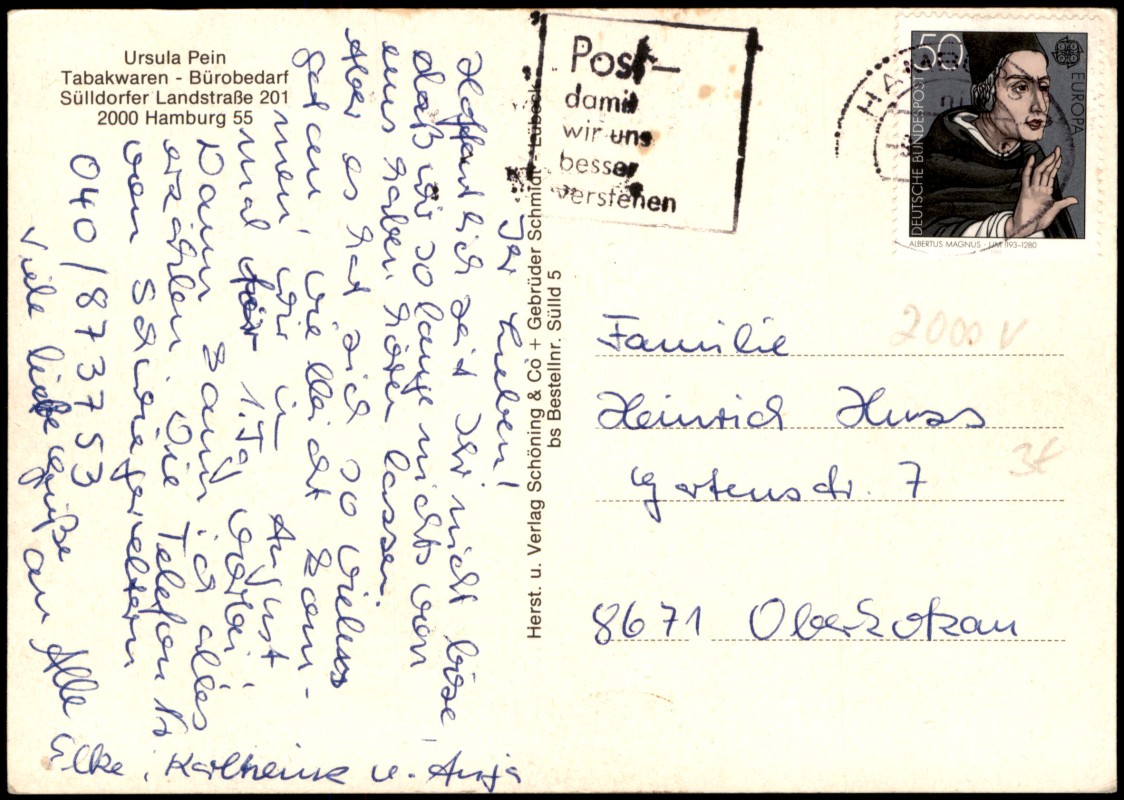 Ursula Pein
Tabakwaren - Bürobedarf
Sülldorfer Landstraße 201
2000 Hamburg 55
Ihr Lieben!
Hoffentlich seit Ihr nicht böse,
daß wir so lange nichts von
uns haben hören lassen.
Aber es hat sich so vieles
getan. Vielleicht kom-
men wir im August
mal für 1. Tag vorbei.
Dann kann ich alles
erzählen. Die Telefon Nr.
von Schwiegereltern
040/873753
Viele liebe Grüße an Alle
Elke, Karlheinz u. Anja
Herst. u. Verlag Schöning & Co + Gebrüder Schmidt - Lübeck
bs Bestellnr. Sülld 5
Post-
damit
wir uns
besser
verstehen
HA
50
DEUTSCHE BUNDESPOST
EUROPA
ALBERTUS MAGNUS · UM 1193-1280
2000 V
Familie
Heinrich Huss
3t
Gartenstr. 7
8671 Oberkotzau